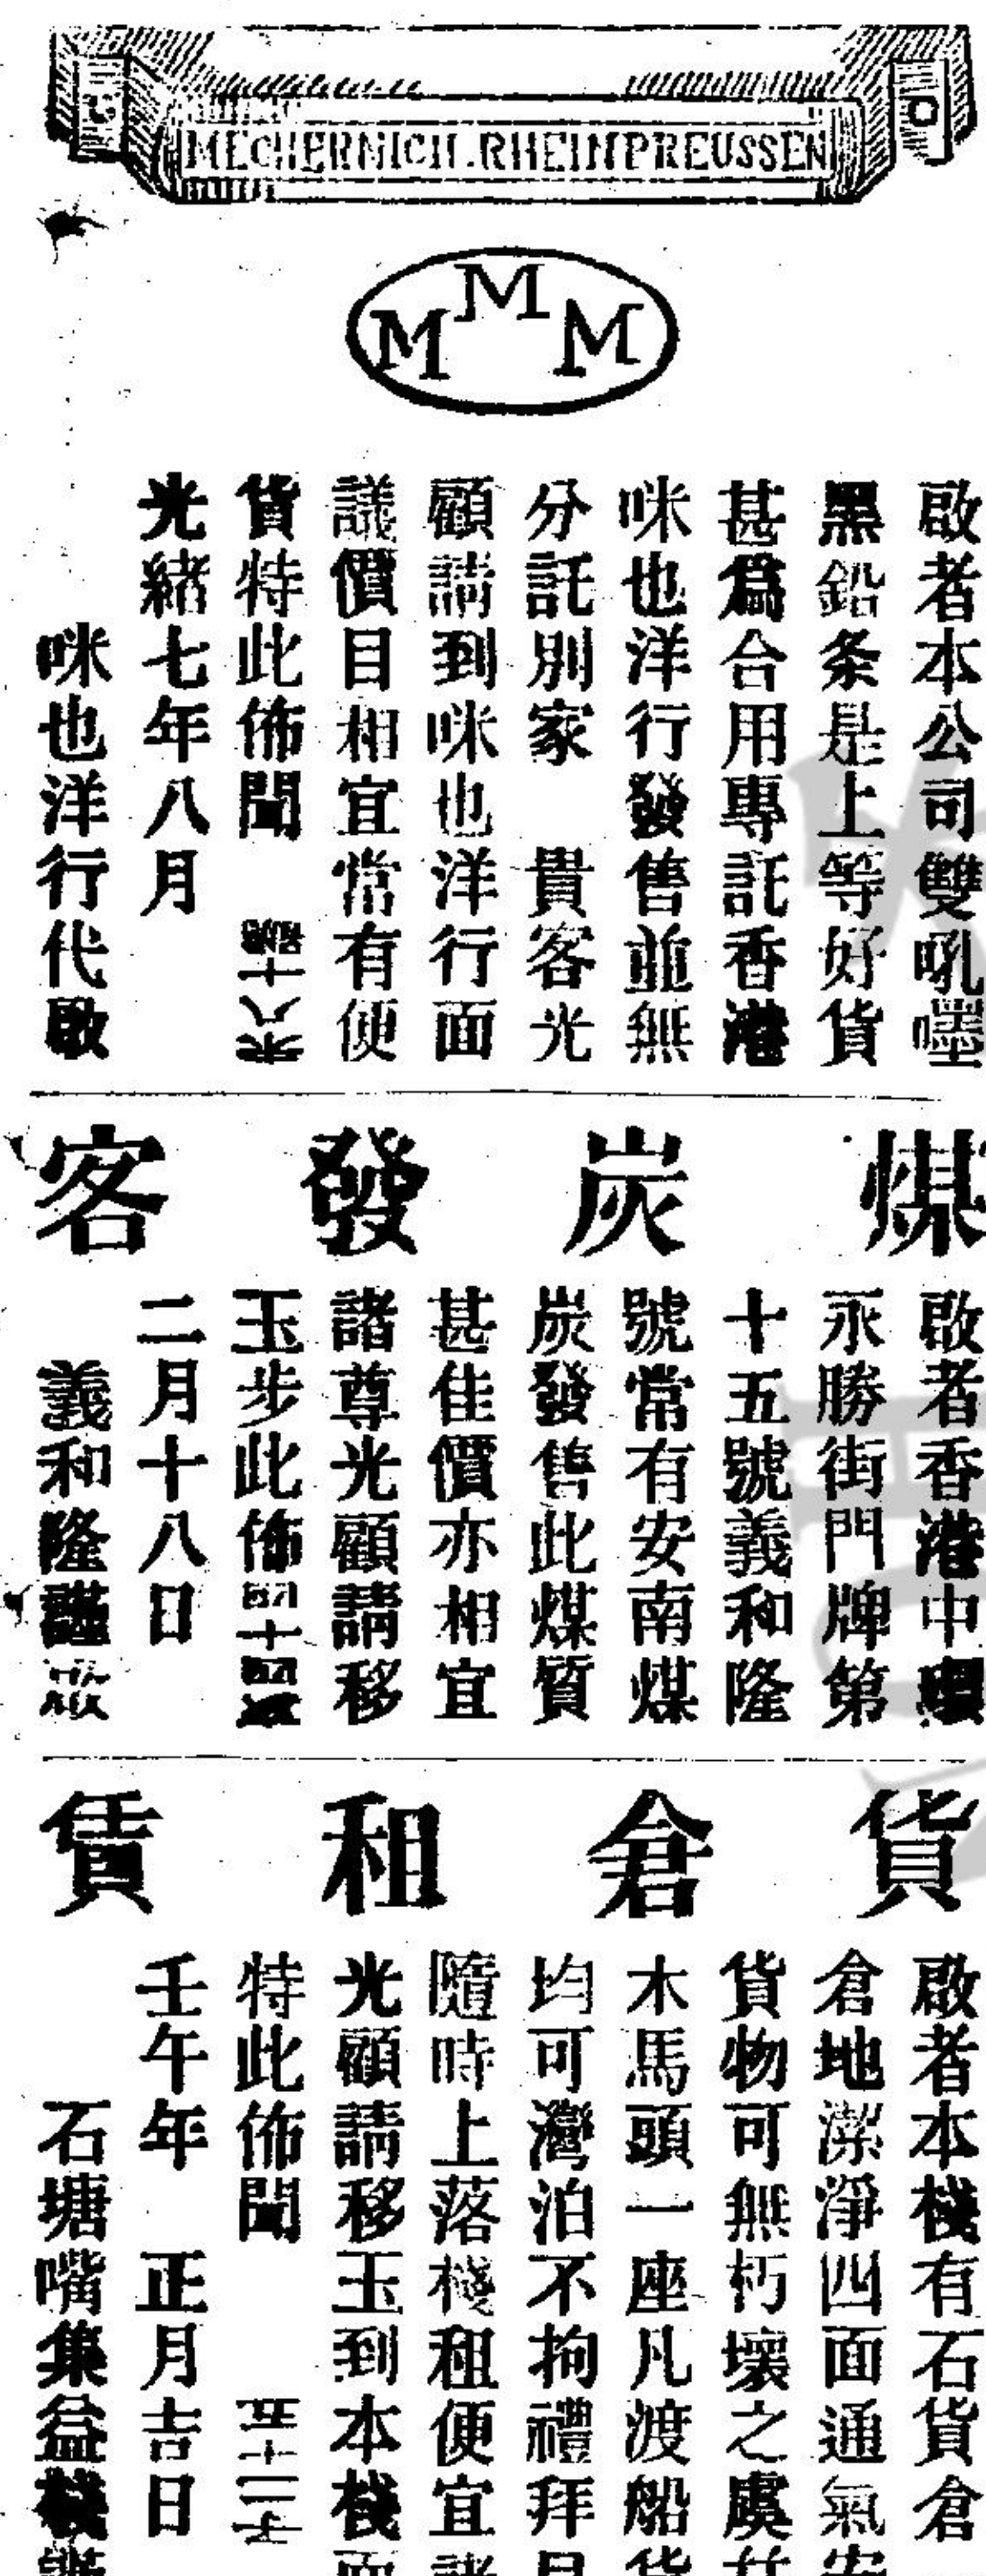 MECHERNICH.RHEINPREUSSEN
M M M
啟者本公司雙吼嚜
黑鉛条是上等好貨
甚爲合用專託香港
咪也洋行發售並無
分託別家 貴客光
顧請到咪也洋行面
議價目相宜常有便
貨特此佈聞
光緒七年八月
咪也洋行代啟
煤炭發客
啟者香港中環
永勝街門牌第
十五號義和隆
號常有安南煤
炭發售此煤質
甚佳價亦相宜
諸尊光顧請移
玉步此佈
二月十八日
義和隆謹啟
貨倉租賃
啟者本棧有石貨倉
倉地潔淨四面通氣
貨物可無朽壞之虞
木馬頭一座凡渡船
均可灣泊不拘禮拜
隨時上落棧租便宜
光顧請移玉到本棧
特此佈聞
壬午年 正月吉日
石塘嘴集益棧